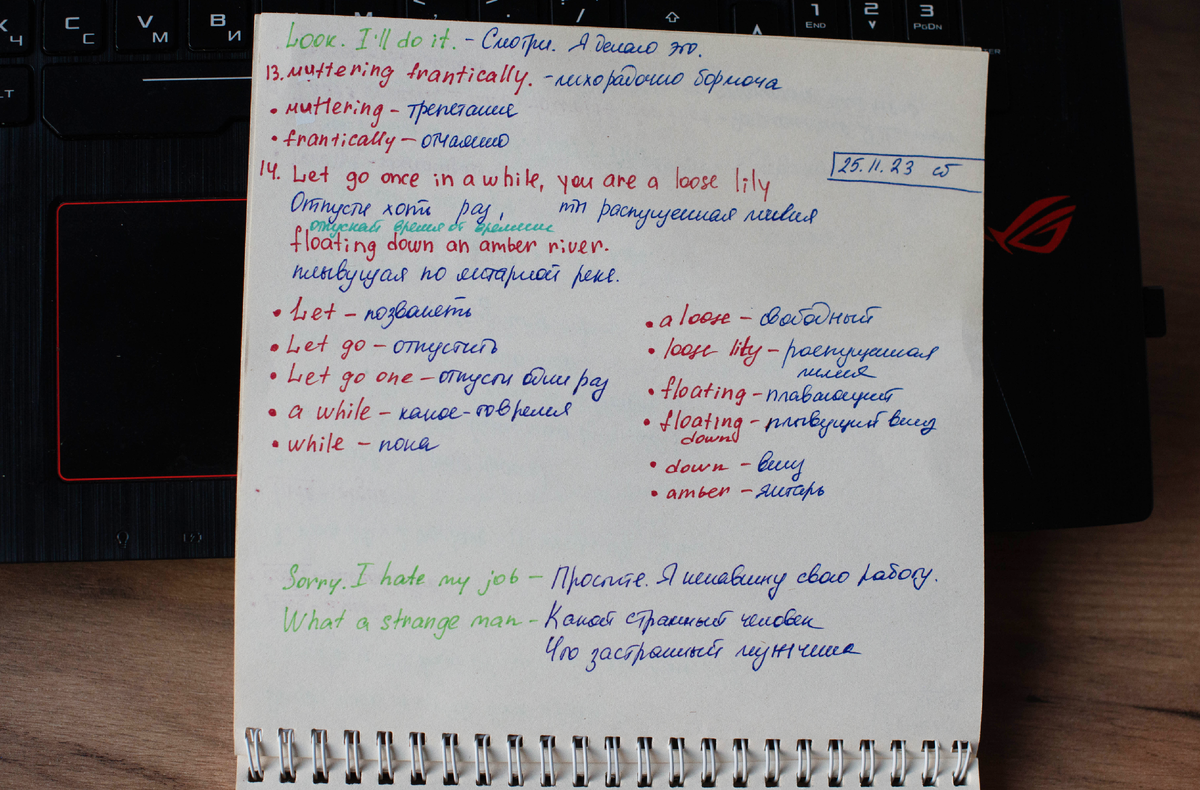 Look. I'll do it. – Смотри. Я делаю это.
13. muttering frantically. – лихорадочно бормоча
• muttering – трепетание
• frantically – отчаянно
25.11.23 сб
14. Let go once in a while, you are a loose lily
Отпусти хоть раз, ты распущенная лилия
отпускай время от времени
floating down an amber river.
плывущая по янтарной реке.
• Let – позволять
• Let go – отпустить
• Let go one – отпусти один раз
• a while – какое-то время
• while – пока
• a loose – свободный
• loose lily – распущенная
лилия
• floating – плавающий
• floating – плывущий вниз
down
• down – вниз
• amber – янтарь
Sorry. I hate my job – Простите. Я ненавижу свою работу.
What a strange man – Какой странный человек
Что за странный мужчина
Ч
C
С
V
М
B
И
1
END
2
3
PGDN